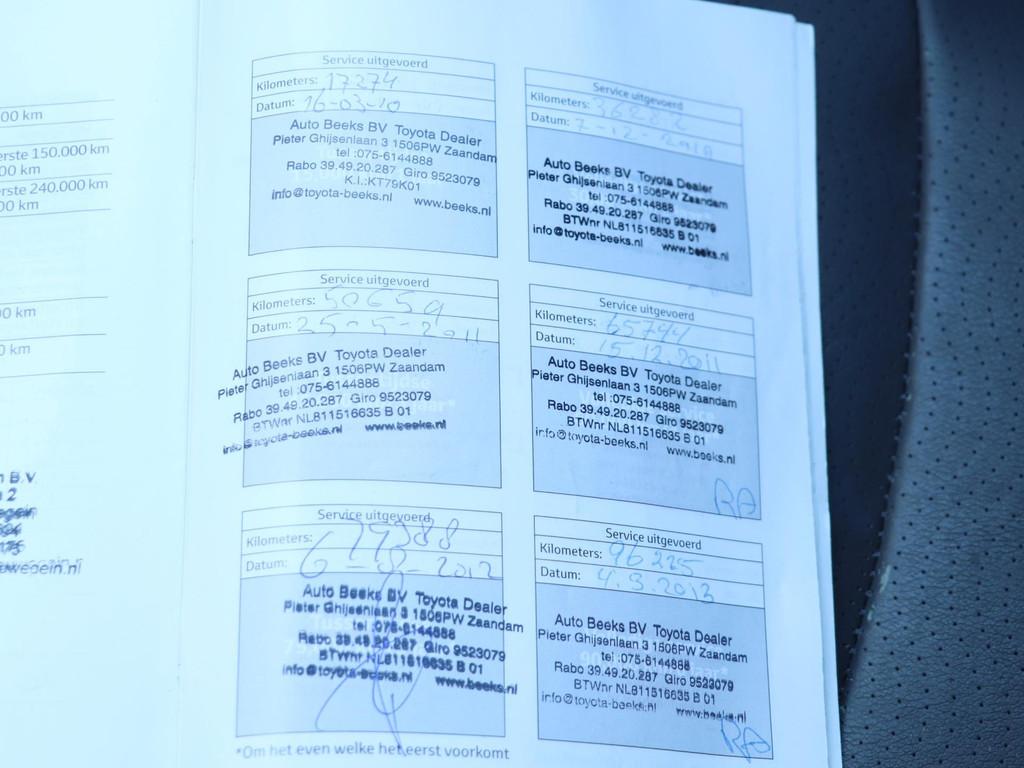 00 km
erste 150.000 km
00 km
erste 240.000 km
00 km
0 km
0 km
B.V.
2
owegein.nl
Service uitgevoerd
Kilometers: 17274
Datum: 16-03-10
Auto Beeks BV Toyota Dealer
Pieter Ghijsenlaan 3 1506PW Zaandam
tel :075-6144888
Rabo 39.49.20.287 Giro 9523079
K.I.:KT79K01
info@toyota-beeks.nl www.beeks.nl
Service uitgevoerd
Kilometers: 36282
Datum: 7-12-2010
Auto Beeks BV Toyota Dealer
Pieter Ghijsenlaan 3 1506PW Zaandam
tel :075-6144888
Rabo 39.49.20.287 Giro 9523079
BTWnr NL811516635 B 01
info@toyota-beeks.nl www.beeks.nl
Service uitgevoerd
Kilometers: 50659
Datum: 25-5-2011
Auto Beeks BV Toyota Dealer
Pieter Ghijsenlaan 3 1506PW Zaandam
tel :075-6144888
Rabo 39.49.20.287 Giro 9523079
BTWnr NL811516635 B 01
info@toyota-beeks.nl www.beeks.nl
Service uitgevoerd
Kilometers: 65744
Datum: 15.12.2011
Auto Beeks BV Toyota Dealer
Pieter Ghijsenlaan 3 1506PW Zaandam
tel :075-6144888
Rabo 39.49.20.287 Giro 9523079
BTWnr NL811516635 B 01
info@toyota-beeks.nl www.beeks.nl
RA
Service uitgevoerd
Kilometers: 79388
Datum: 6-03-2012
Auto Beeks BV Toyota Dealer
Pieter Ghijsenlaan 3 1506PW Zaandam
tel :075-6144888
Rabo 39.49.20.287 Giro 9523079
BTWnr NL811516635 B 01
info@toyota-beeks.nl www.beeks.nl
Service uitgevoerd
Kilometers: 96225
Datum: 4.3.2013
Auto Beeks BV Toyota Dealer
Pieter Ghijsenlaan 3 1506PW Zaandam
tel :075-6144888
Rabo 39.49.20.287 Giro 9523079
BTWnr NL811516635 B 01
info@toyota-beeks.nl www.beeks.nl
RA
*Om het even welke het eerst voorkomt